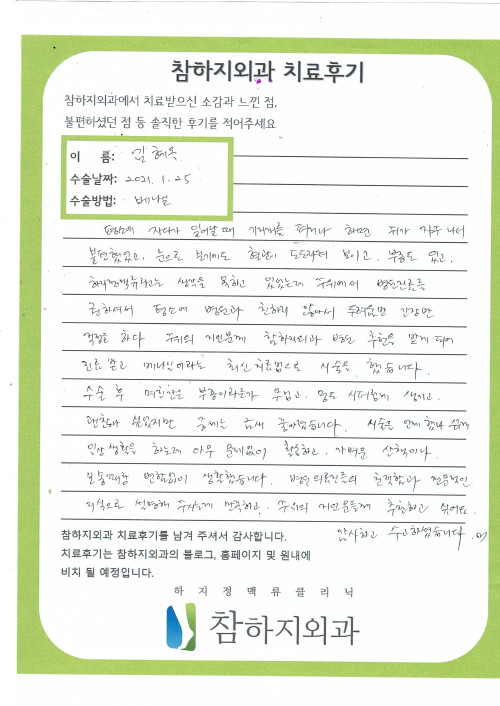 참하지외과 치료후기
참하지외과에서 치료받으신 소감과 느낀 점,
불편하셨던 점 등 솔직한 후기를 적어주세요
이 름: 김혜옥
수술날짜: 2021. 1. 25
수술방법: 베나실
평소에 자다가 일어날 때 기지개를 펴거나 하면 쥐가 자주 나서
불편했었고, 눈으로 보기에도 혈관이 도드라져 보이고, 부종도 있고,
하지정맥류라고는 생각을 못하고 있었는데 주위에서 병원진료를
권하셔서 평소에 병원과 친하지 않아서 두려움반 긴장반
걱정을 하다 주위의 지인분께 참하지외과 병원 추천을 받게 되어
진료 받고 베나실이라는 최신 치료법으로 시술을 했습니다.
수술 후 며칠간은 부종이라든가 무겁고, 멍도 시퍼렇게 생기고,
괜찮나 싶었지만 증세는 금새 좋아졌습니다. 시술을 언제 했나 싶게
일상생활을 하는데 아무 문제없이 활동하고, 가벼운 산책이나
보통때랑 변함없이 생활했습니다. 병원 의료진들의 친절함과 전문적인
지식으로 설명해 주시는게 만족하고, 주위의 지인분들께 추천하고 싶어요.
감사하고 수고하셨습니다.
참하지외과 치료후기를 남겨 주셔서 감사합니다.
치료후기는 참하지외과의 블로그, 홈페이지 및 원내에
비치 될 예정입니다.
하지정맥류클리닉
참하지외과